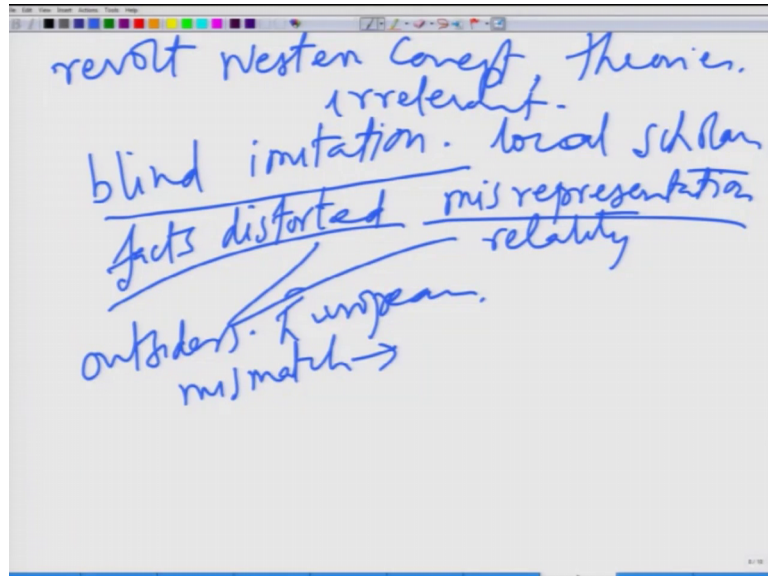 File Edit View Insert Actions Tools Help
revolt Western Concept, theories.
irrelevant.
blind imitation. local scholars
facts distorted misrepresentation
reality
outsiders. European.
mismatch →